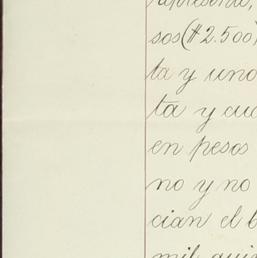 representa,
sos ($2.500)
ta y uno
ta y cua
en pesos
no y no
cian el b
mil qui